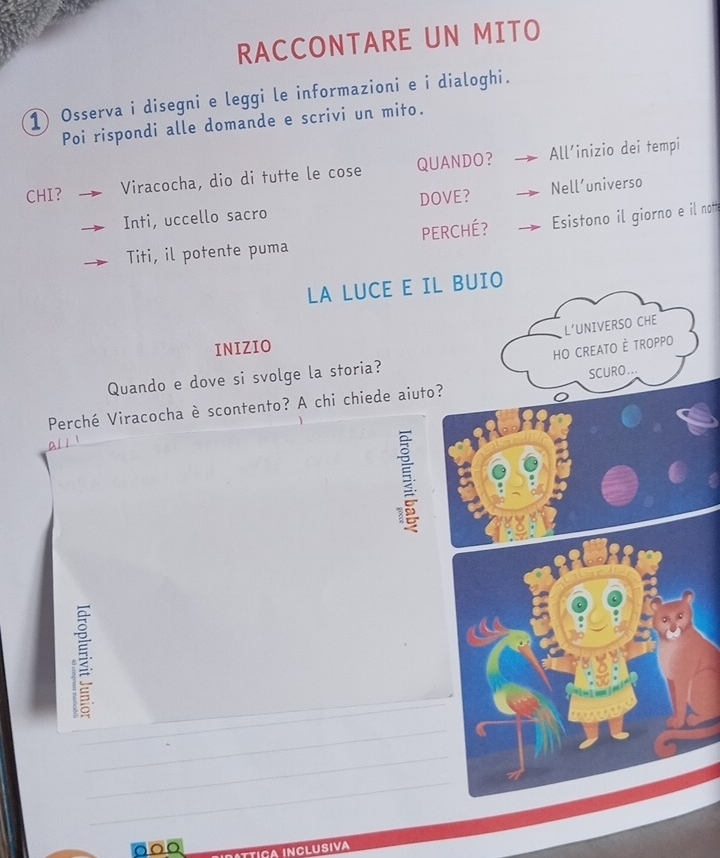 RACCONTARE UN MITO
1 Osserva i disegni e leggi le informazioni e i dialoghi.
Poi rispondi alle domande e scrivi un mito.
CHI? → Viracocha, dio di tutte le cose
→ Inti, uccello sacro
→ Titi, il potente puma
QUANDO? → All'inizio dei tempi
DOVE? → Nell'universo
PERCHÉ? → Esistono il giorno e il
LA LUCE E IL BUIO
INIZIO
Quando e dove si svolge la storia?
Perché Viracocha è scontento? A chi chiede aiuto?
L'UNIVERSO CHE
HO CREATO È TROPPO
SCURO...
Idroplurivit baby
gocce
Idroplurivit Junior
DIDATTICA INCLUSIVA